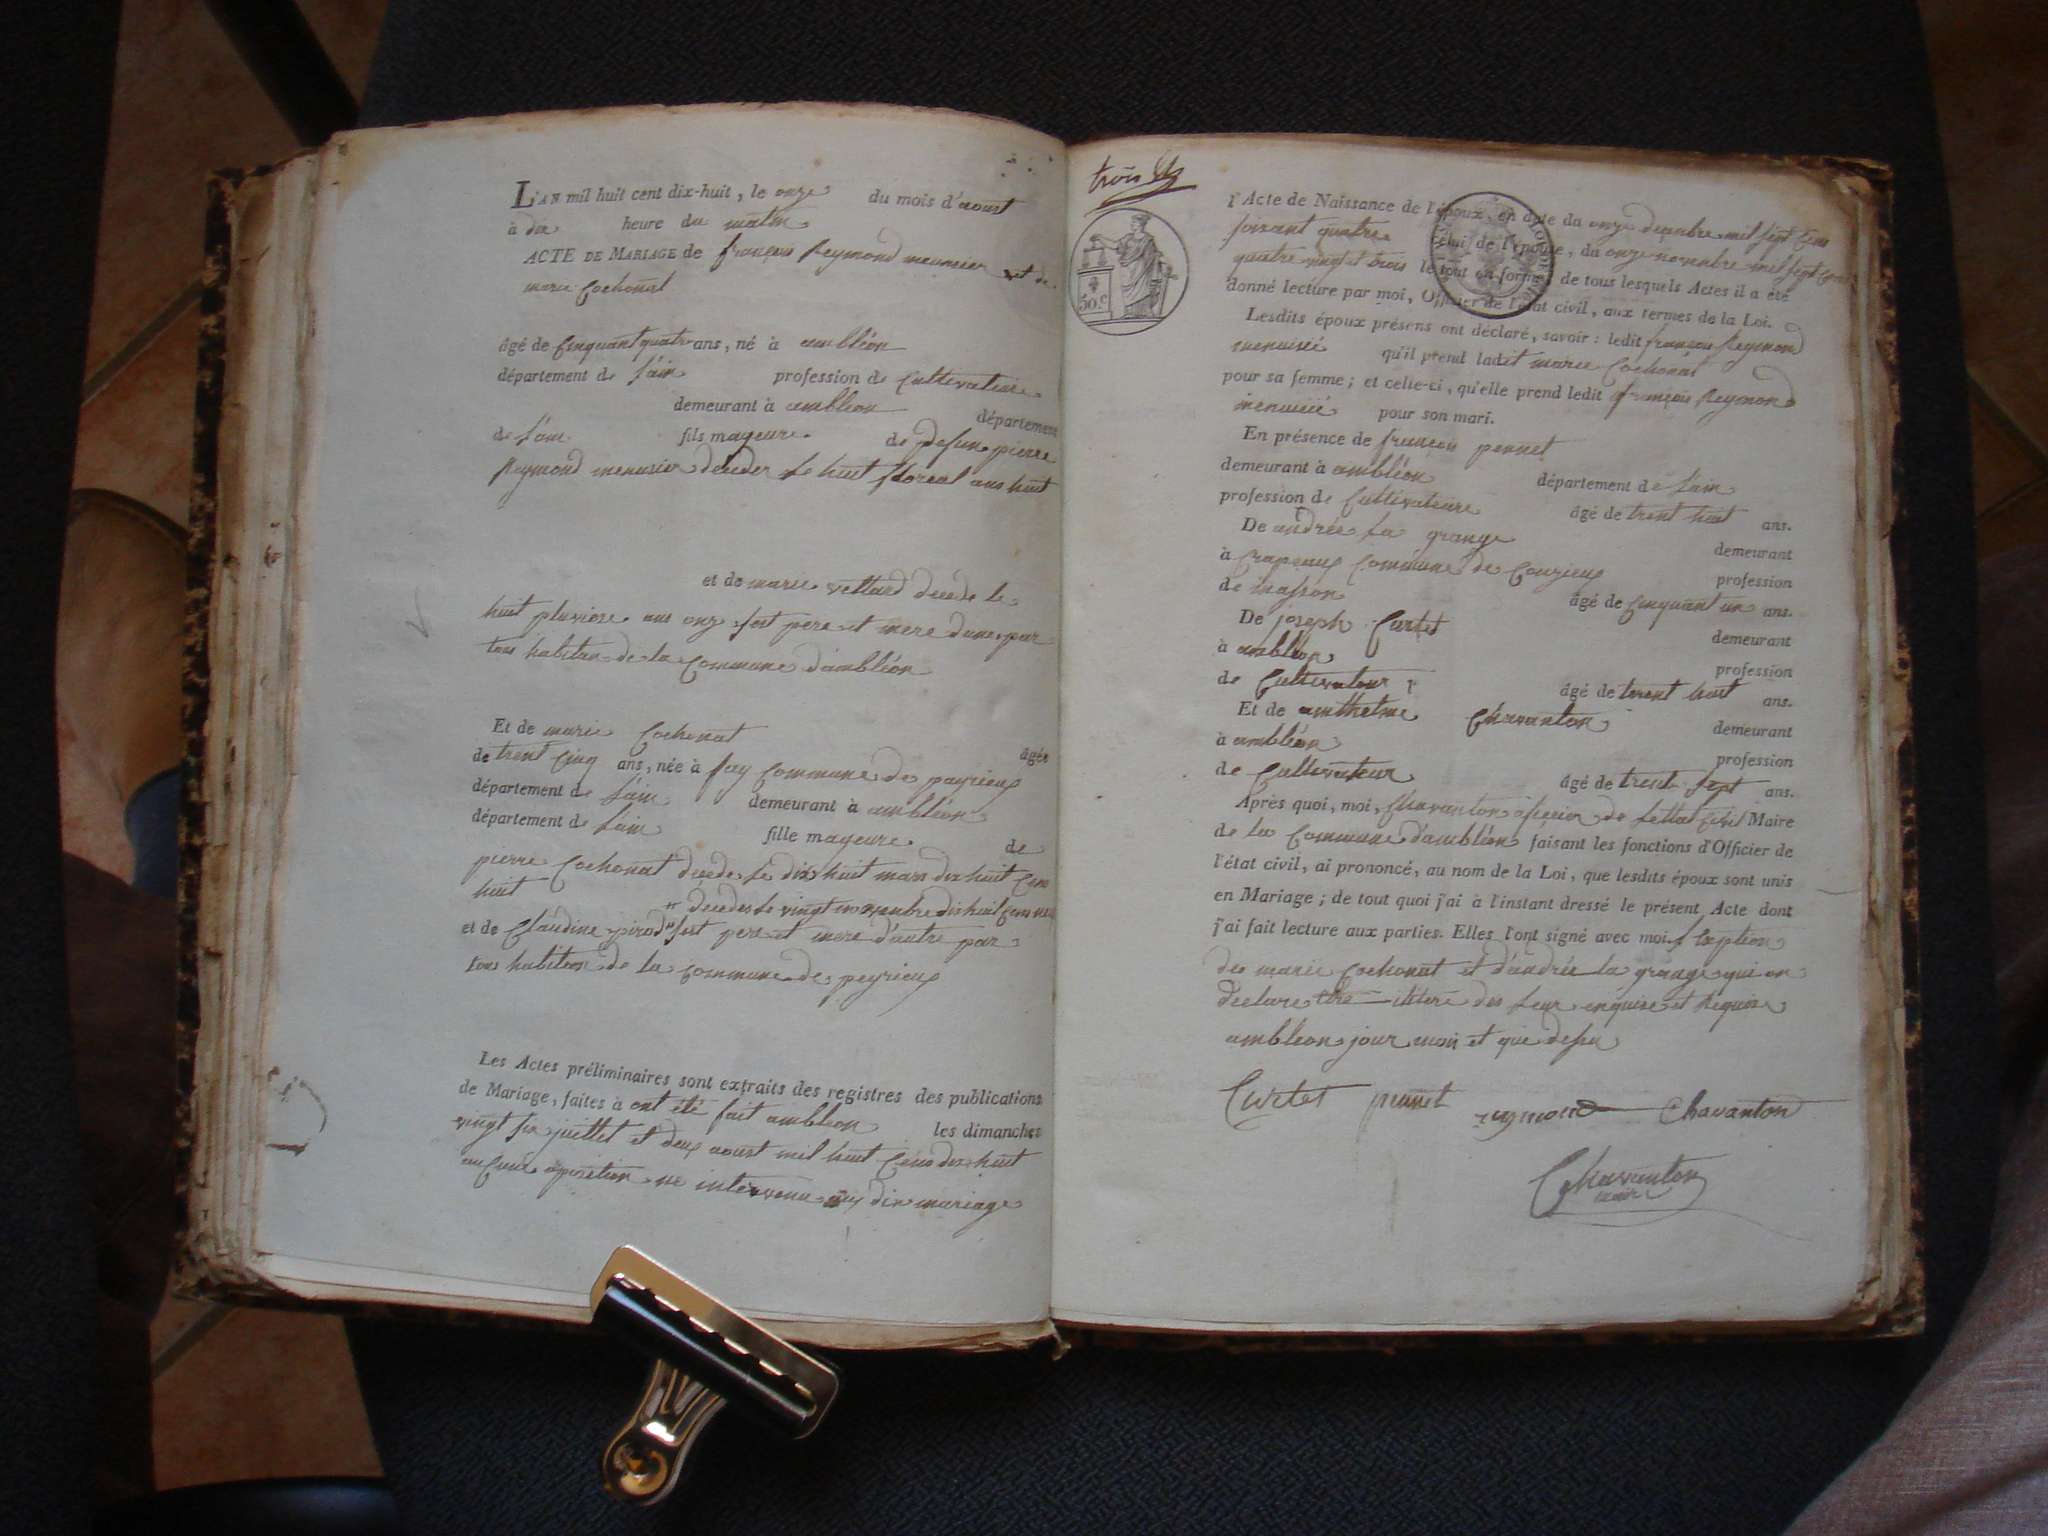 L'AN mil huit cent dix-huit, le onze du mois d'aoust
à dix heure du matin
ACTE DE MARIAGE de françois Reymond menusier et de
marie Cochonat
âgé de Cinquant quatre ans, né à ambléon
département de l'ain profession de Cultivateure
demeurant à ambléon département
de l'ain fils mageure de defun pierre
Reymond menusier deceder le huit floreal ans huit
et de marie vettard decede le
huit pluviose ans onze fest pere et mere dune par
tous habitan de la Commune d'ambléon
Et de marie Cochonat âgée
de trent Cinq ans, née à fay Commune de peyrieux
département de l'ain demeurant à ambléon
département de l'ain fille mageure de
pierre Cochonat decede le dix huit mars dix huit Cens
huit
" decedes le vingt novembre dishuit Cens
et de Claudine pirod " fest pere et mere d'autre par
tous habiton de la Commune de peyrieux
Les Actes préliminaires sont extraits des registres des publications
de Mariage, faites à ont été fait ambléon les dimanches
vingt six juillet et deux aoust mil huit Cens dix huit
aucune oposition ne intervenu aux dix mariage
trois
50.c
l'Acte de Naissance de l'époux, en date du onze decenbre mil sept Cens
soisant quatre celui de l'épouse, du onze novenbre mil sept Cens
quatre vingt trois le tout en forme; de tous lesquels Actes il a été
donné lecture par moi, Officier de l'état civil, aux termes de la Loi.
Lesdits époux présens ont déclaré, savoir: ledit françois Reymond
menuisié qu'il prend ladet marie Cochonat
pour sa femme; et celle-ci, qu'elle prend ledit françois Reymond
menuisié pour son mari.
En présence de françois pernet
demeurant à ambléon département de l'ain
profession de Cultivateure âgé de trent huit ans.
De andrée la grange demeurant
à Crapeux Commune de Conzieux profession
de masson âgé de Cinquant un ans.
De joseph Curtet demeurant
à ambléon profession
de Cultivateur âgé de trent huit ans.
Et de anthelme Chavanton demeurant
à ambléon profession
de Cultivateur âgé de trent sept ans.
Après quoi, moi, Chavanton oficier de lettat Civil Maire
de la Commune d'ambléon faisant les fonctions d'Officier de
l'état civil, ai prononcé, au nom de la Loi, que lesdits époux sont unis
en Mariage; de tout quoi j'ai à l'instant dressé le présent Acte dont
j'ai fait lecture aux parties. Elles l'ont signé avec moi. Exption
de marie Cochonat et d'andrée la grange qui on
declare etre iliteré des leur enquise et Requise
ambleon jour mois et que desu
Curtet pernet reymond Chavanton
Chavanton
maire